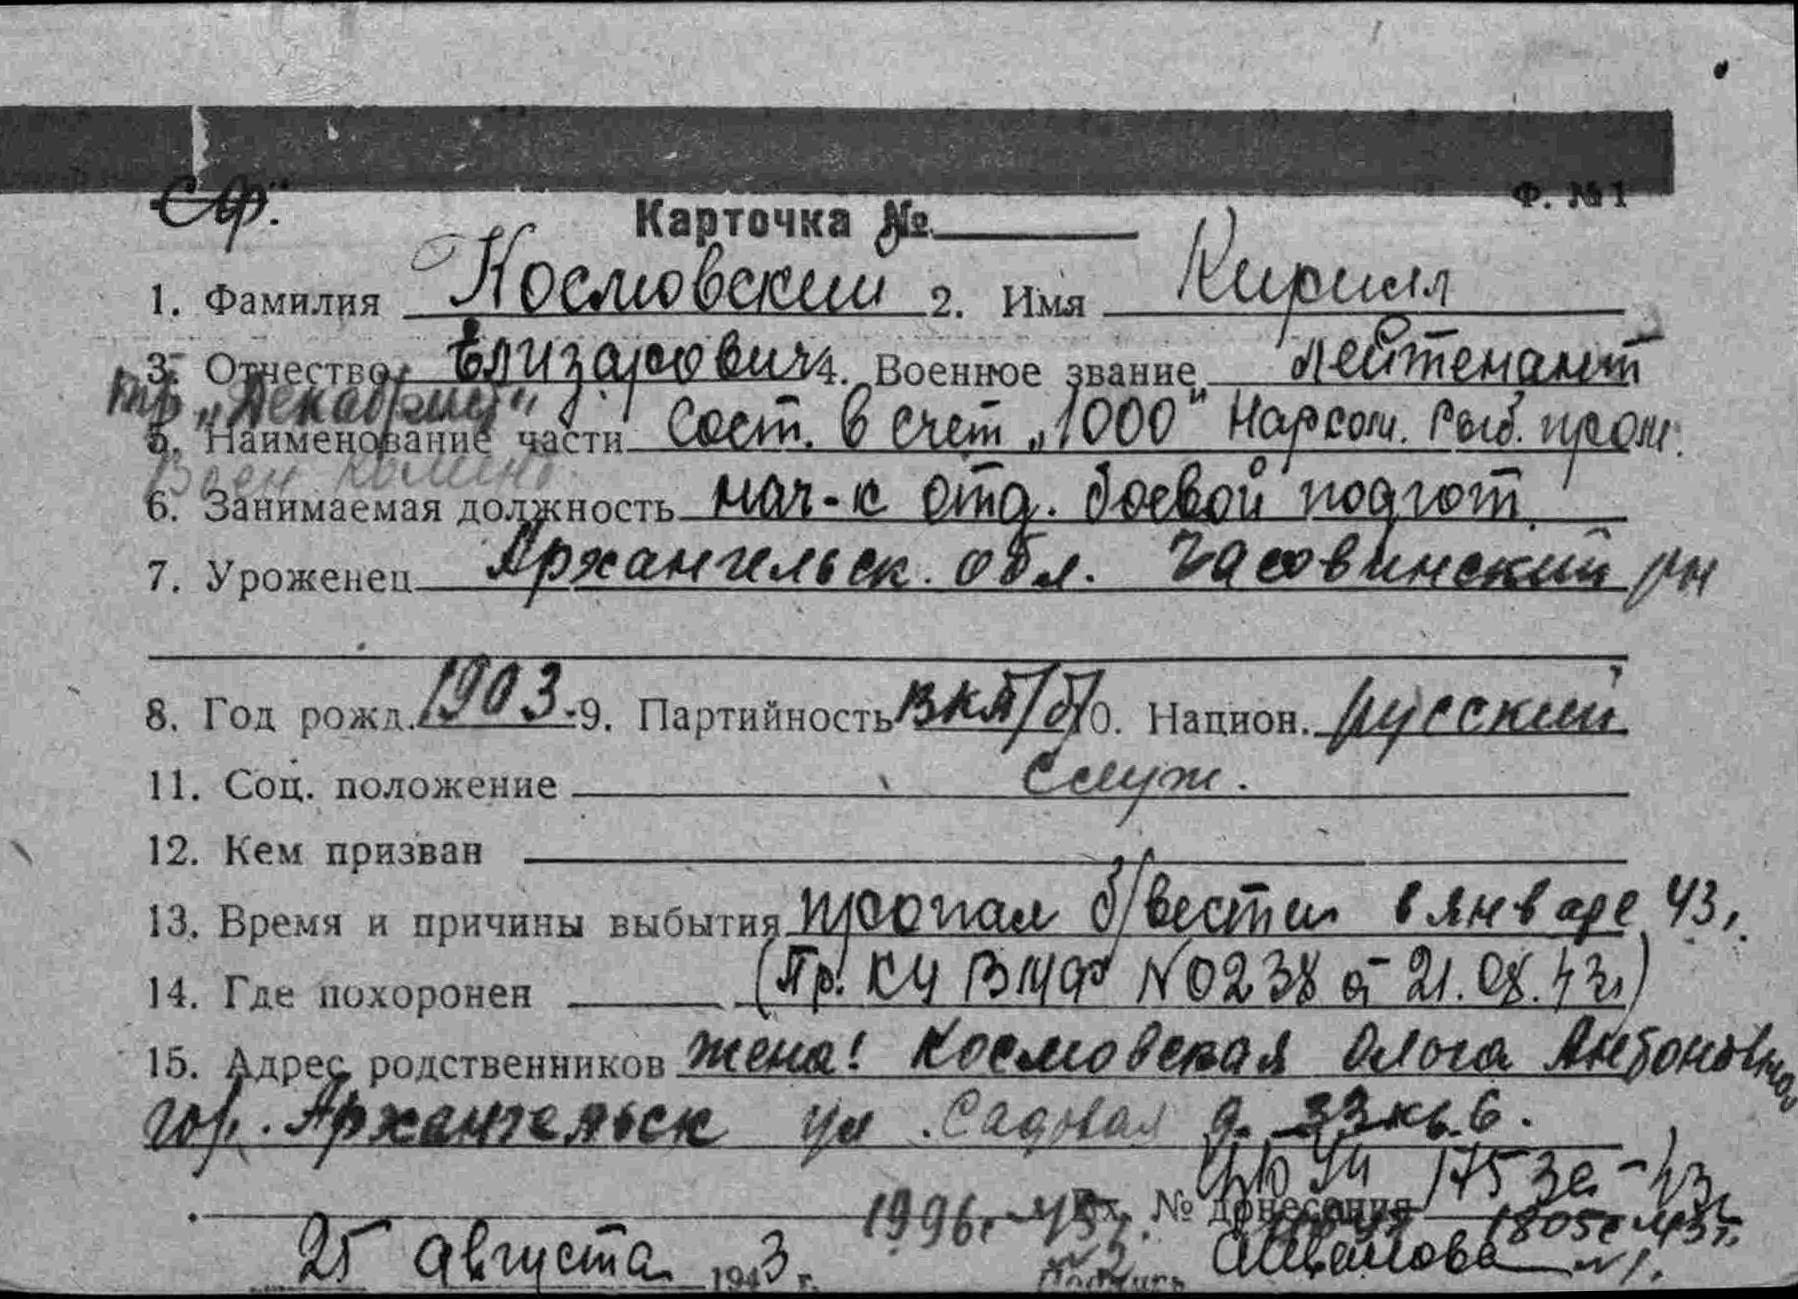 СФ.
Ф. № 1
Карточка №
1. Фамилия Космовский 2. Имя Кирилл
3. Отчество Елизарович 4. Военное звание лейтенант
тр „Декабрист“
5. Наименование части сост. в счет „1000“ Нарком. Рыб. пром.
Воен
6. Занимаемая должность нач-к отд. боевой подгот.
7. Уроженец Архангельск. обл. Часовинский рн
8. Год рожд. 1903. 9. Партийность ВКП/б/ 10. Национ. русский
11. Соц. положение служ.
12. Кем призван
13. Время и причины выбытия пропал б/вести в январе 43г.
14. Где похоронен (Пр. КУ ВМФ № 0238 от 21.08.43г)
15. Адрес родственников жена: Космовская Ольга Антоновна
гор. Архангельск ул. Садовая д. 33 кв. 6.
1996с-43г. Вх. № донесения 1753с-43г
1805с-43г.
25 августа 1943 г. Подпись